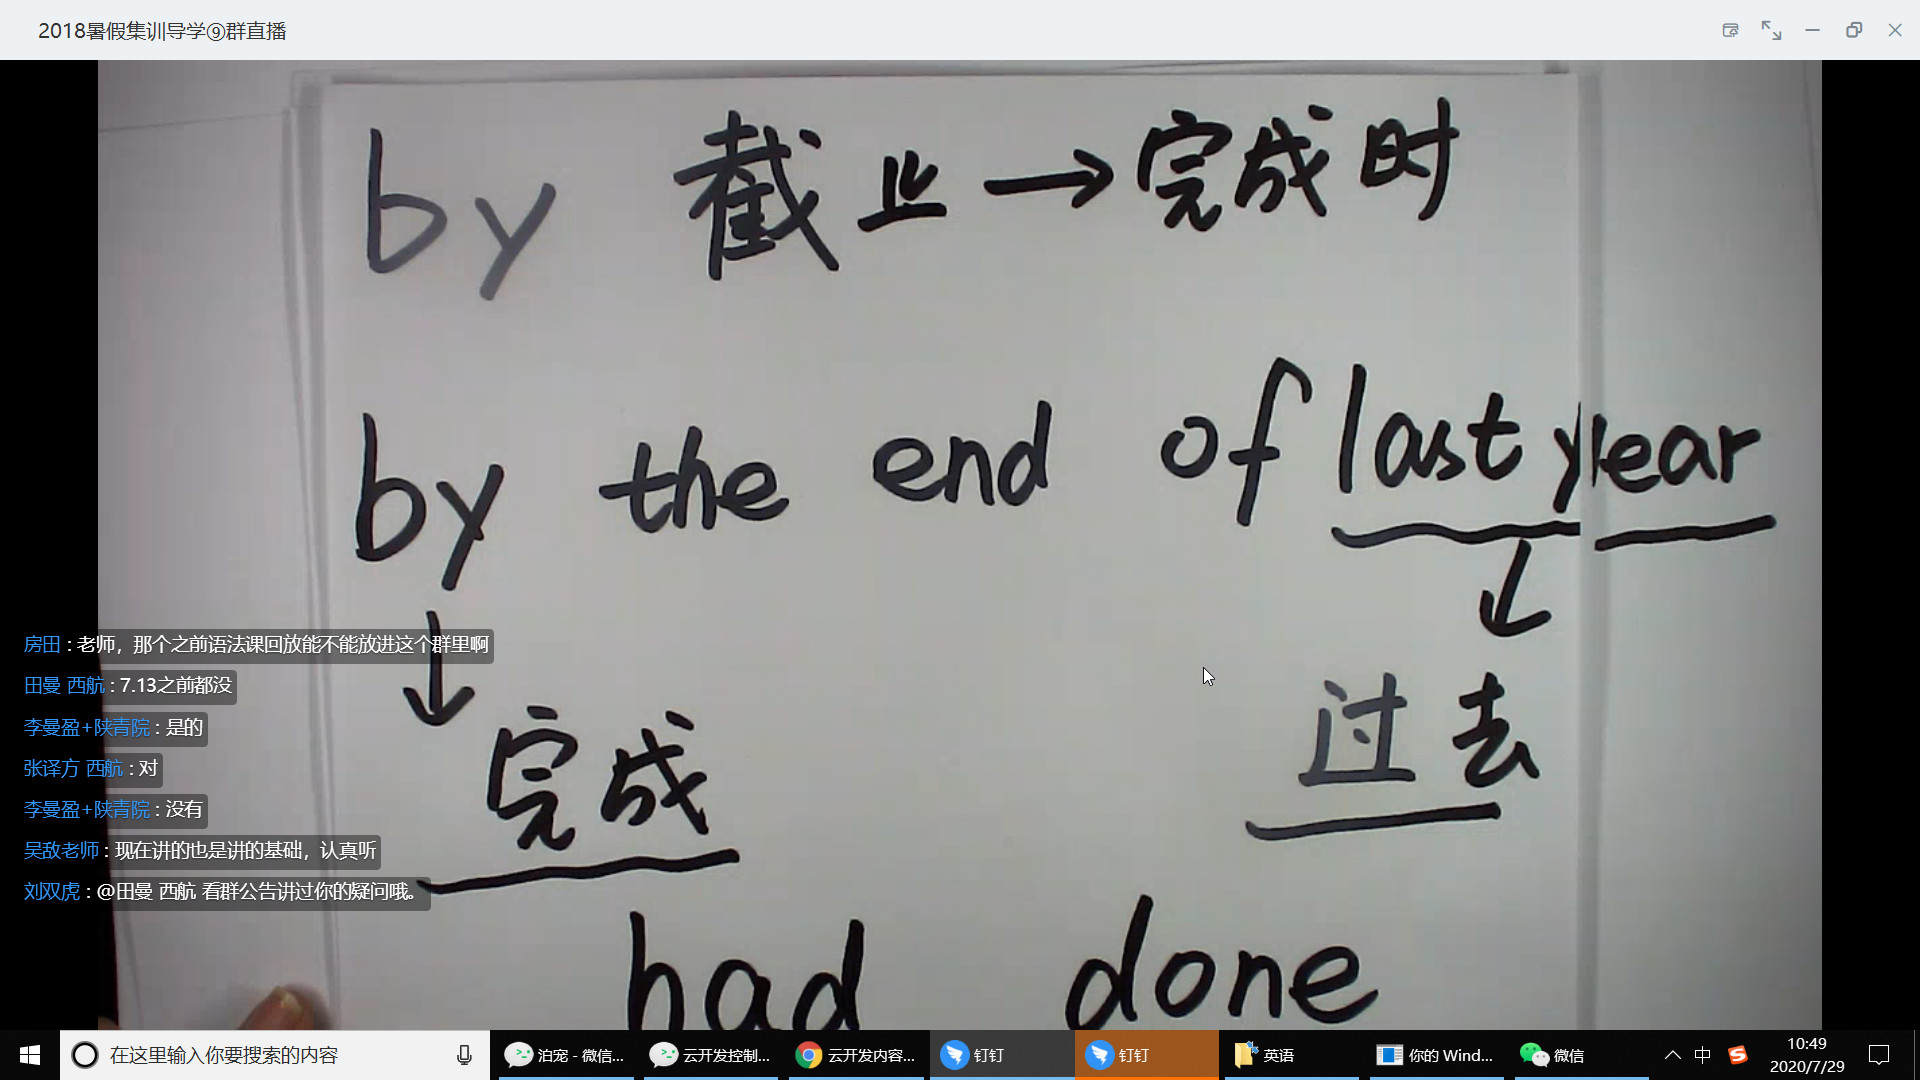 2018暑假集训导学⑨群直播
by 截止→完成时
by the end of last year
完成 过去
had done
房田 : 老师，那个之前语法课回放能不能放进这个群里啊
田曼 西航 : 7.13之前都没
李曼盈+陕青院 : 是的
张译方 西航 : 对
李曼盈+陕青院 : 没有
吴敌老师 : 现在讲的也是讲的基础，认真听
刘双虎 : @田曼 西航 看群公告讲过你的疑问哦。
在这里输入你要搜索的内容
泊宠 - 微信...
云开发控制...
云开发内容...
钉钉
钉钉
英语
你的 Wind...
微信
中
10:49
2020/7/29